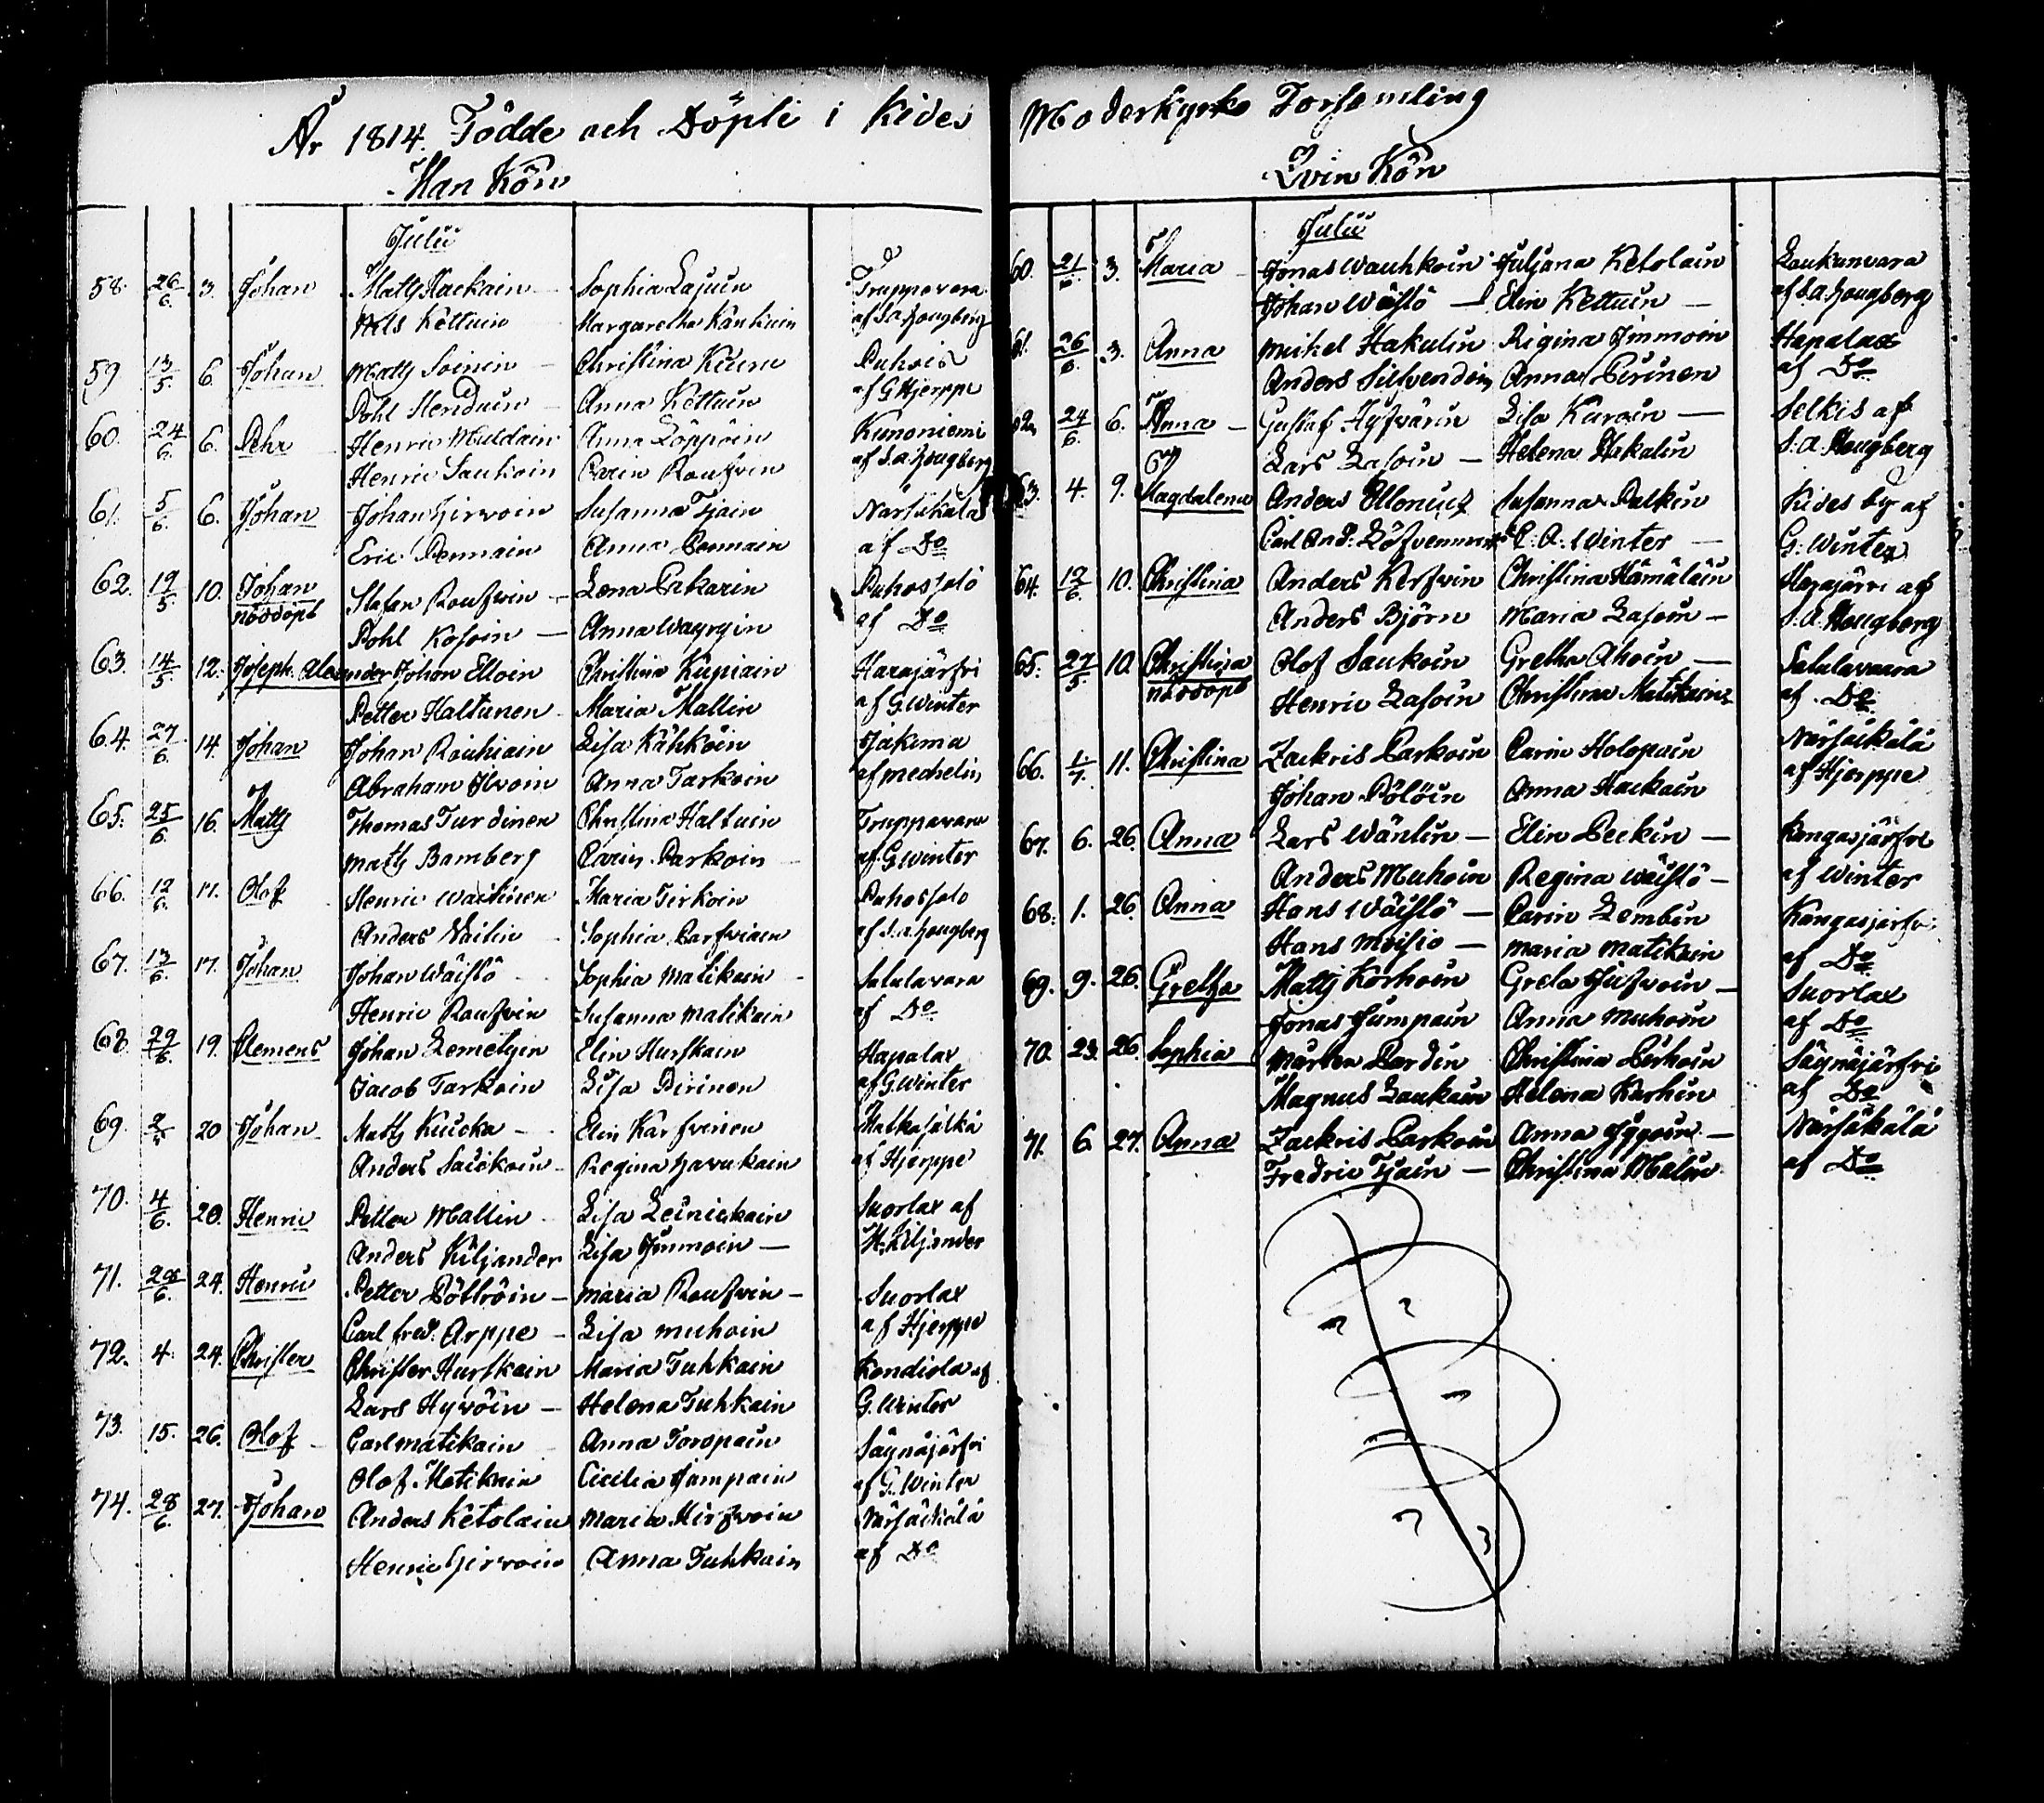 År 1814. Födde och Döpte i Kides
Man Kön
Julii
58. 26/6. 3. Johan Matts Hackain Sophia Lajuin Truppovara
Nils Kettuin Margaretha Känkuin af S.a. Hougberg
59 13/5 6 Johan Matts Soinin Christina Puhois
Pohl Henduin Anna Kettuin af G Hjerppe
60. 24/6. 6. Pehr Henric Muldain Anna Löppöin Kunoniemi
Henric Saukoin Carin Roufvin af S.a. Hougberg
61. 5/6. 6. Johan Johan Hirvoin Susanna Tjain Närsäkälä
Eric Pennain Anna Pennain af Do
62. 19/5. 10. Johan Stafan Roufvin Lena Pakarin Puhossalo
nöddöpt
Pohl Kosoin Anna Wäyryin af Do
63. 14/5 12. Joseph Alexander Johan Elloin Christina Kupiain Harajärfvi
Petter Haltunen Maria Mallin af G. Winter
64. 27/6. 14. Johan Johan Rouhiain Lisa Kähköin Jakima
Abraham Ilvoin Anna Tarkoin af Mechelin
65. 25/6. 16. Matts Thomas Turdinen Christina Haltuin Truppavara
Matts Bamberg Carin Parkoin af G. Winter
66. 12/6. 17. Olof Henric Wäitinen Maria Tirkoin Puhossalo
Anders Nailin Sophia Parfviain af S.a. Hougberg
67. 13/6. 17. Johan Johan Wäistö Sophia Matikain Salulavara
Henric Roufvin Susanna Matikain af Do
68. 29/6. 19. Clemens Johan Lemetyin Elin Hurskain Hapalax
Jacob Tarkoin Lisa Pirinen af G. Winter
69. 20 Johan Matts Kuicka Elin Karfvinen Matkasälkä
Anders Saickoin Regina Havukain af Hjerppe
70. 4/6. 20. Henric Petter Mallin Lisa Leinickain Suorlax af
Anders Kiljander Lisa Immoin H. Kiljander
71. 28/6. 24. Henric Petter Pöllöin Maria Roufvin Suorlax
Carl fred. Arppe Lisa Muhoin af Hjerppe
72. 4. 24. Christer Christer Hurskain Maria Tuhkain Kendiola af
Lars Hyvöin Helena Tuhkain G. Winter
73. 15. 26. Olof Carl Matikain Anna Toropain Säynäjärfvi
Olof Matikain Cicilia Jampain af G. Winter
74. 28/6. 27. Johan Anders Ketolain Maria Hirfvoin Närsäkälä
Henric Hirvoin Anna Tuhkain af Do
Moderkyrko Forsamling
Qvin Kön
Julii
60. 21/6 3. Maria Jonas Wauhkoin Juljana Ketolain Laukunvara
Johan Wäistö Elin Kettuin af S.a. Hougberg
61. 26/6 3. Anna Mickel Hakulin Regina Immoin Hapalax
Anders Silvendoin Anna Pirinen af Do
62. 24/6. 6. Anna Gustaf Hyfvärin Lisa Kuroin Selkis af
Lars Lasoin Helena Hakulin S.A. Hougberg
63. 4. 9. Magdalena Anders Ellonius Susanna Palkin Kides by af
Carl And. Löfvenmark C. A. Winter G. Winter
64. 12/6. 10. Christina Anders Kerfvin Christina Hämäläin Harajärvi af
Anders Björn Maria Lasoin S.A. Hougberg
65. 27/5. 10. Christina Olof Saukoin Gretha Ahoin Salulavaara
nöddöpt Henric Lasoin Christina Matikain af Do
66. 1/7. 11. Christina Zackris Parkoin Carin Holopain Närsäkälä
Johan Pölöin Anna Hackain af Hjerppe
67. 6. 26. Anna Lars Wänlin Elin Peckin Kangasjärfvi
Anders Muhoin Regina Wäistö af Winter
68. 1. 26. Anna Hans Wäistö Carin Lembin Kangasjärfvi
Hans Moisio Maria Matikain af Do
69. 9. 26. Gretha Matts Korhoin Greta Hirfvoin Suorlax
Jonas Jumpain Anna Muhoin af Do
70. 23. 26 Sophia Mårten Pardin Christina Perhoin Säynäjärfvi
Magnus Laukain Helena Karhin af Do
71. 6 27. Anna Zackris Parkoin Anna Iggoin Närsäkälä
Fredric Tjain Christina Melin af Do